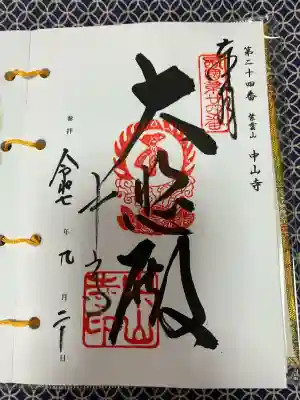 第二十四番 紫雲山 中山寺
奉拝
大悲殿
中山寺
参拝 令和七年九月二十日